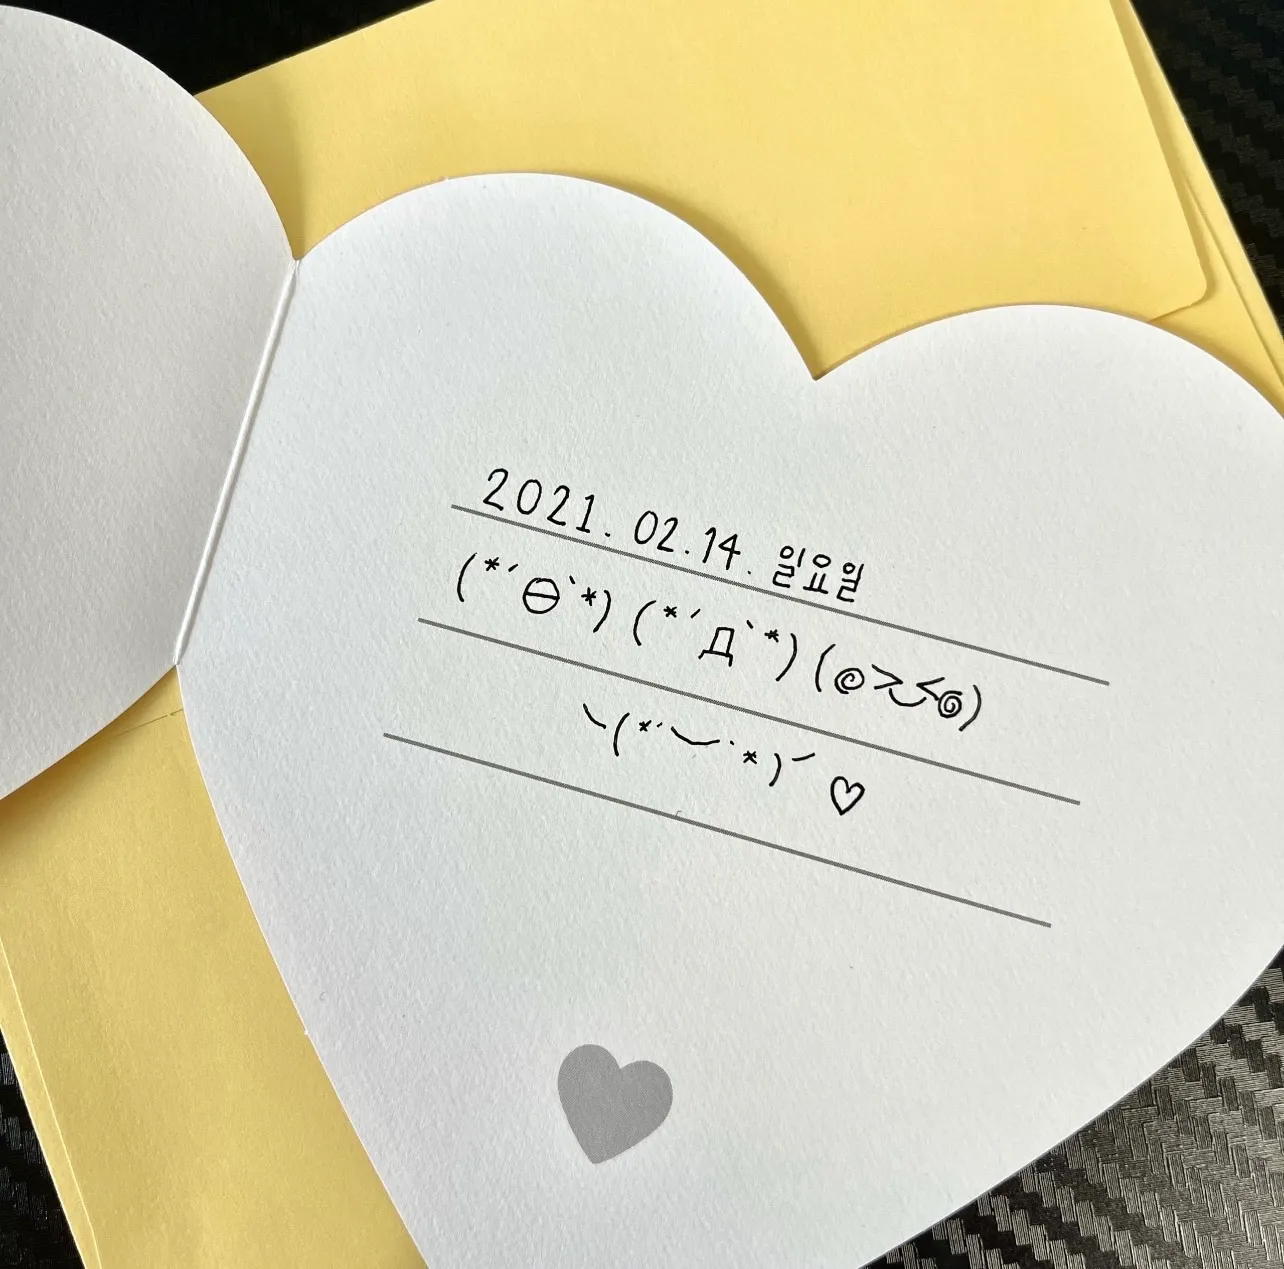 2021. 02. 14. 일요일
(*´Θ`*) (*´Д`*) (@ㅈㅅ@)
ヽ(*´‿`*)ノ ♡